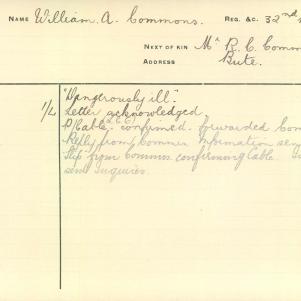 NAME William A. Commons. REG. &C. 32nd
NEXT OF KIN Mr R. C. Comm
ADDRESS Bute.
"Dangerously ill".
Letter acknowledged
Cable confirmed. forwarded Com
Reply from Common Information
Slip from Common confirming Cable.
send Inquiries.